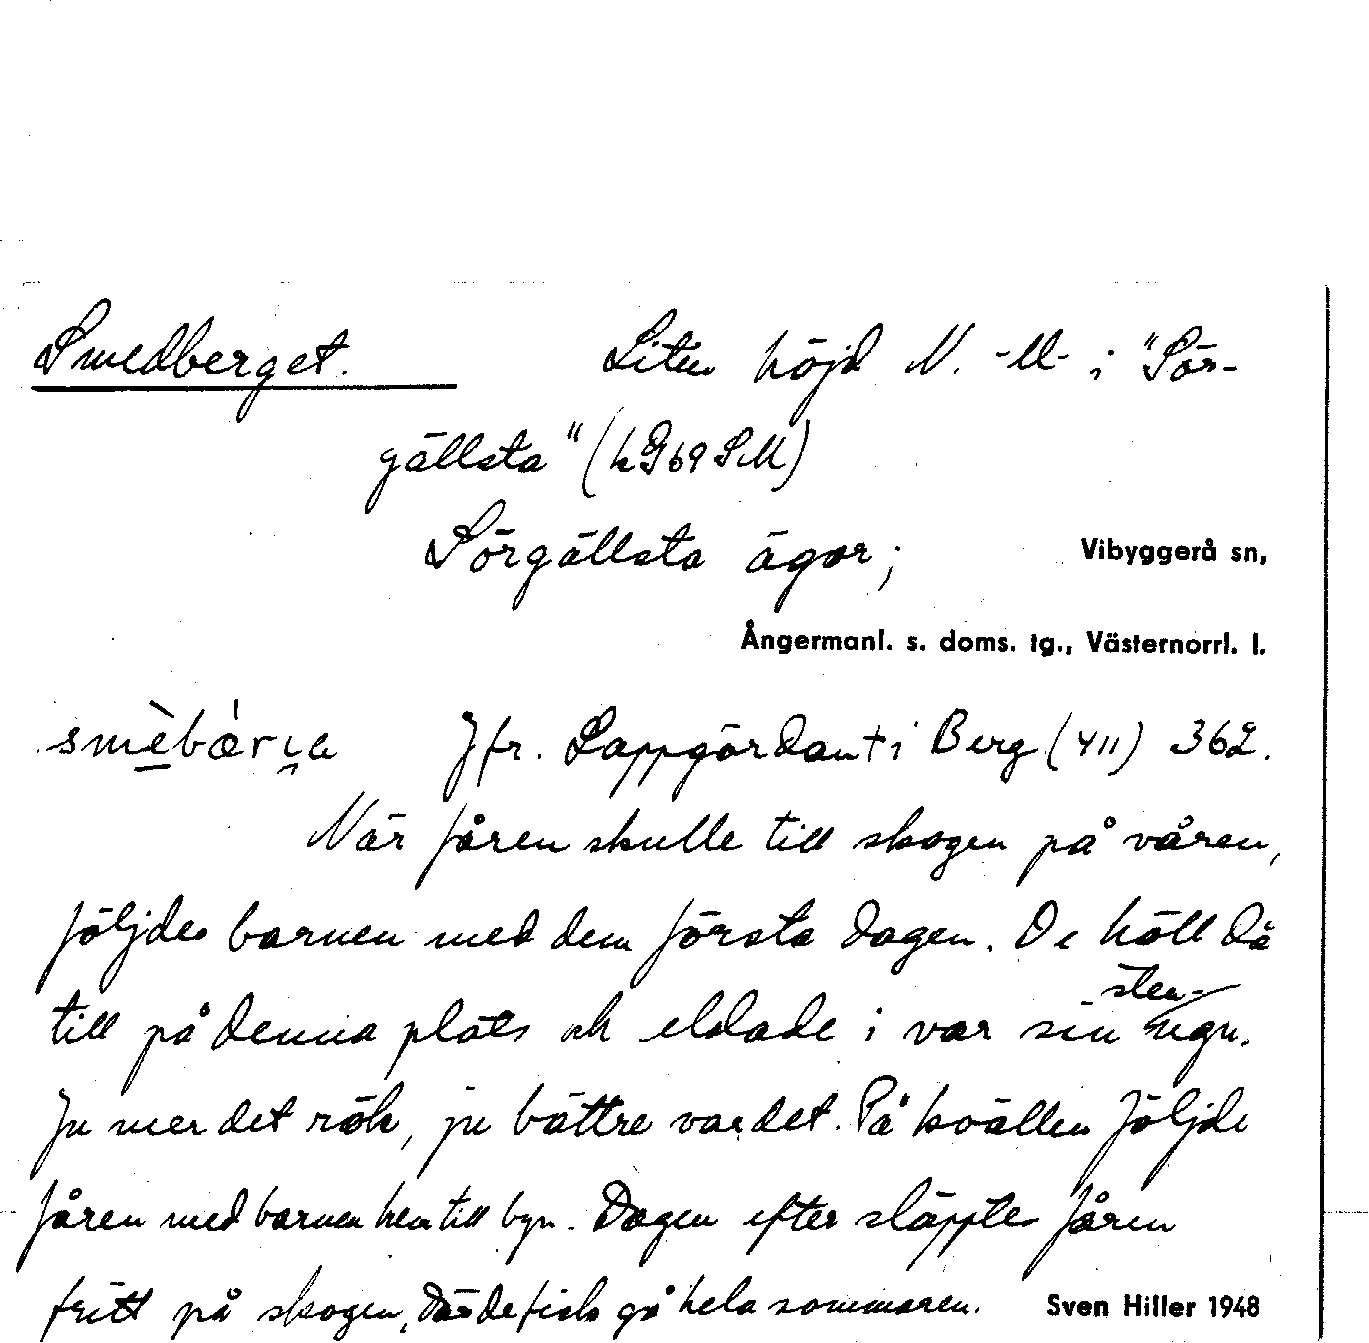 Smedberget. Liten höjd N. -U- i "Sör-
gällsta" (kG69SM)
Sörgällsta ägor; Vibyggerå sn,
Ångermanl. s. doms. tg., Västernorrl. l.
Jfr. Lappgördant i Berg (411) 362.
När fåren skulle till skogen på våren,
följdes barnen med dem första dagen. De höll då
till på denna plats och eldade i var sin sten-
ugn.
Ju mer det rök, ju bättre var det. På kvällen följde
fåren med barnen hem till byn. Dagen efter släpptes fåren
fritt på skogen, där de fick gå hela sommaren. Sven Hiller 1948